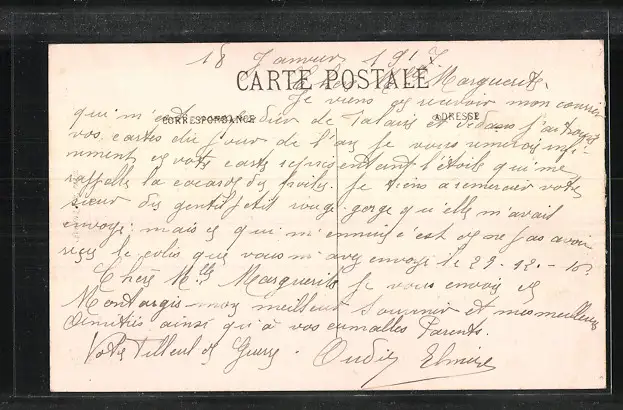 18 Janvier 1917
CARTE POSTALE
Chère Mlle Marguerite.
Je viens de recevoir mon courrier
CORRESPONDANCE
ADRESSE
qui m'est de et dedans j'ai trouvé
vos cartes du jour de l'an je vous remercie infi-
niment et votre carte représentant l'étoile qui me
rappelle la cocarde des poilus. je tiens a remercier votre
sœur du gentil petit rouge-gorge qu'elle m'avait
envoyé. mais ce qui m'ennuie c'est de ne pas avoir
reçu le colis que vous m'avez envoyé le 29-12-16.
Chère Mlle Marguerite je vous envoie de
Montargis mon meilleur souvenir et mes meilleurs
amitiés ainsi qu'à vos aimables Parents.
Votre Filleul de Guerre. Oudin